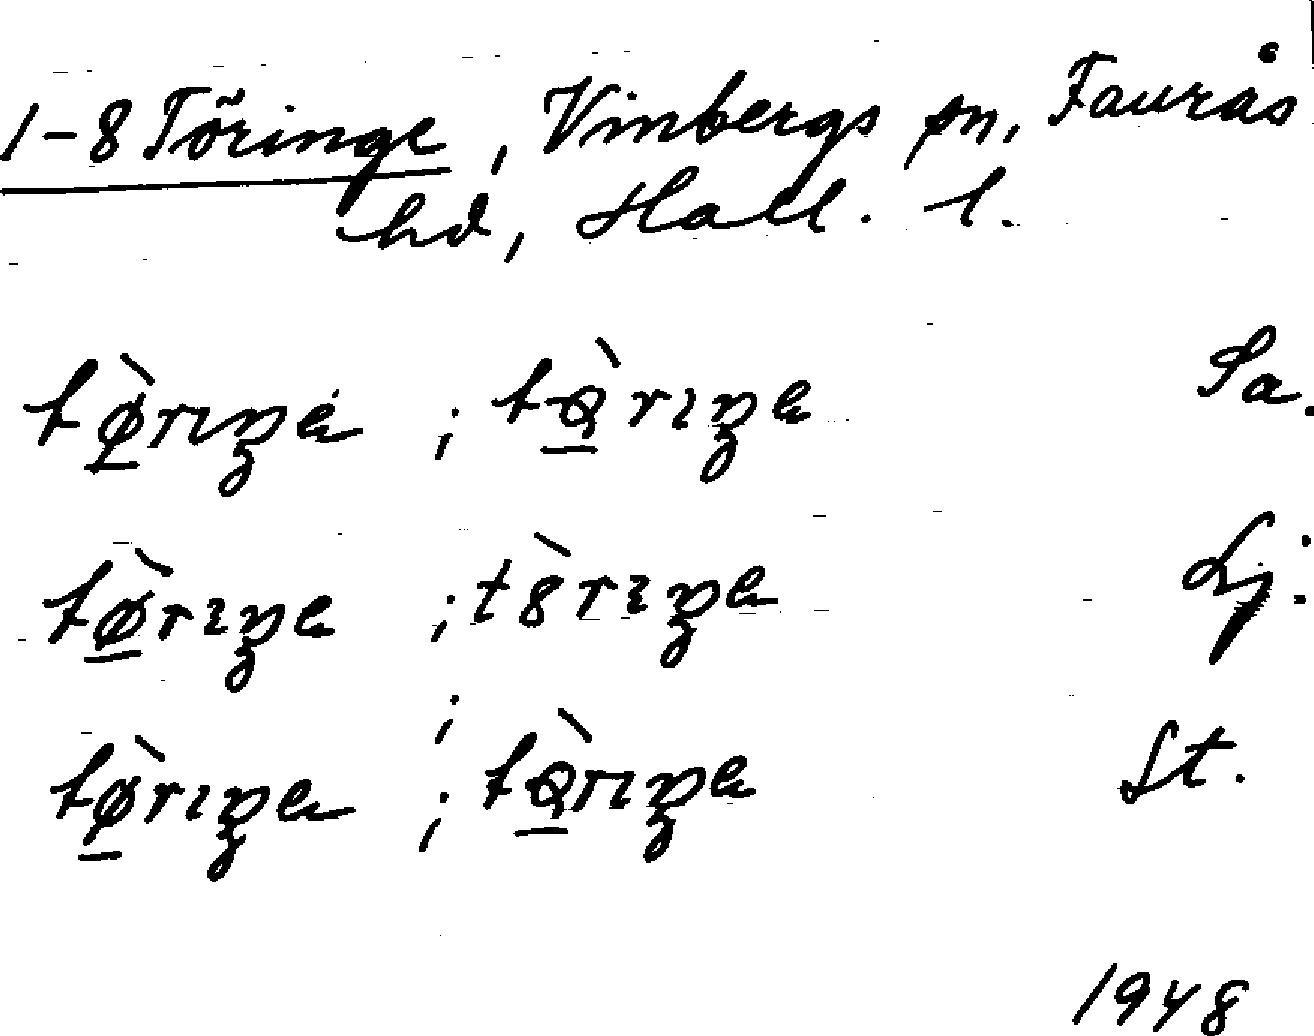 1-8 Töringe, Vinbergs sn, Faurås
hd, Hall. l.
tø̠̀rıŋe ; tò̠rıŋe Sa.
tø̠̀rıŋe ; t8̀rıŋe Lj.
tø̠̀rıŋe ; tò̠rıŋe St.
1948